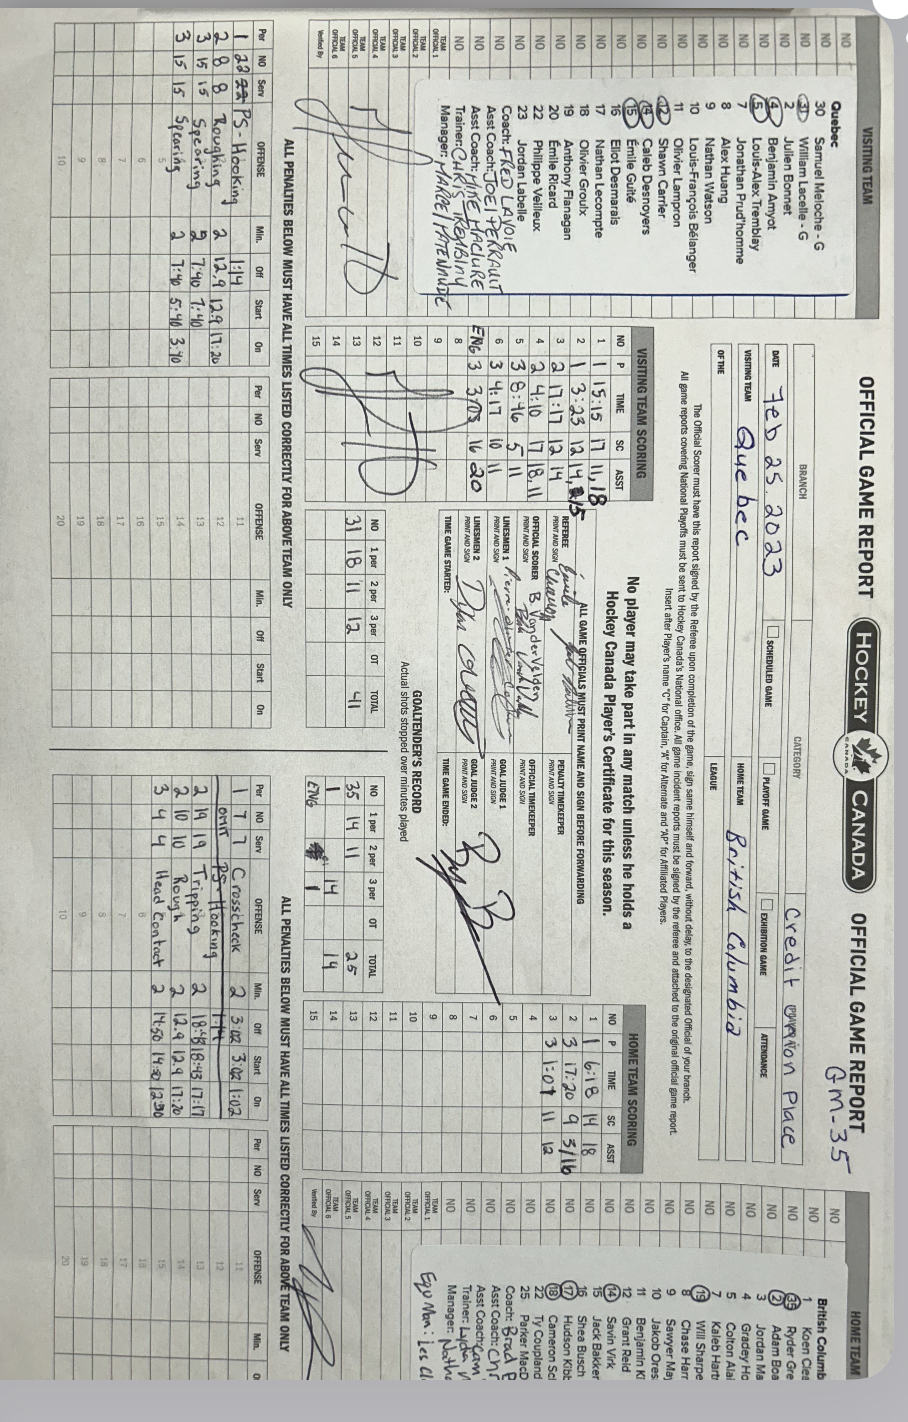 OFFICIAL GAME REPORT
HOCKEY CANADA
OFFICIAL GAME REPORT
GM-35
BRANCH
CATEGORY
Credit Union Place
DATE Feb 25. 2023
SCHEDULED GAME
PLAYOFF GAME
EXHIBITION GAME
ATTENDANCE
VISITING TEAM Quebec
HOME TEAM British Columbia
OF THE
LEAGUE
The Official Scorer must have this report signed by the Referee upon completion of the game, sign same himself and forward, without delay, to the designated Official of your branch.
All game reports covering National Playoffs must be sent to Hockey Canada's National office. All game incident reports must be signed by the referee and attached to the original official game report.
Insert after Player's name "C" for Captain, "A" for Alternate and "AP" for Affiliated Players.
VISITING TEAM
NO
Quebec
30 Samuel Meloche - G
31 William Lacelle - G
2 Julien Bonnet
4 Benjamin Amyot
5 Louis-Alex Tremblay
7 Jonathan Prud'homme
8 Alex Huang
9 Nathan Watson
10 Louis-François Bélanger
11 Olivier Lampron
12 Shawn Carrier
14 Caleb Desnoyers
15 Émile Guité
16 Eliot Desmarais
17 Nathan Lecompte
18 Olivier Groulx
19 Anthony Flanagan
20 Émile Ricard
22 Philippe Veilleux
23 Jordan Labelle
Coach: FRED LAVOIE
Asst Coach: JOEL PERRAULT
Asst Coach: MIKE HACLURE
Trainer: CHRIS TREMBLAY
Manager: MARCEL PATENAUDE
TEAM OFFICIAL 1
TEAM OFFICIAL 2
TEAM OFFICIAL 3
TEAM OFFICIAL 4
TEAM OFFICIAL 5
TEAM OFFICIAL 6
Verified By
VISITING TEAM SCORING
NO P TIME SC ASST
1 1 15:15 17 11,18
2 1 3:23 12 14, 15
3 2 17:17 12 14
4 2 4:10 17 18, 11
5 3 8:46 5 11
6 3 4:17 10 11
ENG 3 3:03 16 20
8
9
10
11
12
13
14
15
No player may take part in any match unless he holds a
Hockey Canada Player's Certificate for this season.
ALL GAME OFFICIALS MUST PRINT NAME AND SIGN BEFORE FORWARDING
REFEREE PRINT AND SIGN
PENALTY TIMEKEEPER PRINT AND SIGN
OFFICIAL SCORER PRINT AND SIGN B. VanderVelden
OFFICIAL TIMEKEEPER PRINT AND SIGN
LINESMEN 1 PRINT AND SIGN
GOAL JUDGE 1 PRINT AND SIGN
LINESMEN 2 PRINT AND SIGN
GOAL JUDGE 2 PRINT AND SIGN
TIME GAME STARTED:
TIME GAME ENDED:
GOALTENDER'S RECORD
Actual shots stopped over minutes played
NO 1 per 2 per 3 per OT TOTAL
31 18 11 12 41
NO 1 per 2 per 3 per OT TOTAL
35 14 11 25
1 14 14
ENG 1
HOME TEAM SCORING
NO P TIME SC ASST
1 1 6:18 14 18
2 3 17:20 9 3/16
3 3 1:07 11 12
4
5
6
7
8
9
10
11
12
13
14
15
HOME TEAM
NO
British Columb
1 Koen Clea
35 Ryder Gre
2 Adam Boa
3 Jordan Ma
4 Gradey Ho
5 Colton Alai
7 Kaleb Hart
8 Chase Harr
19 Will Sharpe
9 Sawyer Ma
10 Jakob Ores
11 Benjamin Ki
12 Grant Reid
14 Savin Virk
15 Jack Bakker
16 Shea Busch
17 Hudson Kibb
18 Cameron Sc
22 Ty Coupland
25 Parker MacD
Coach: Brad
Asst Coach: Chr
Asst Coach: Cam
Trainer: Lydia
Manager: Natha
Equ Man: Lee Cl
TEAM OFFICIAL 1
TEAM OFFICIAL 2
TEAM OFFICIAL 3
TEAM OFFICIAL 4
TEAM OFFICIAL 5
TEAM OFFICIAL 6
Verified By
ALL PENALTIES BELOW MUST HAVE ALL TIMES LISTED CORRECTLY FOR ABOVE TEAM ONLY
Per NO Serv OFFENSE Min. Off Start On
1 22 22 PS-Hooking 1:14
2 8 8 Roughing 2 12.9 12.9 17:20
3 15 15 Spearing 5 7:40 7:40
3 15 15 Spearing 2 7:40 5:40 3:40
Per NO Serv OFFENSE Min. Off Start On
ALL PENALTIES BELOW MUST HAVE ALL TIMES LISTED CORRECTLY FOR ABOVE TEAM ONLY
Per NO Serv OFFENSE Min. Off Start On
1 7 7 Crosscheck 2 3:02 3:02 1:02
omit PS-Hooking 1:14
2 19 19 Tripping 2 18:48 18:43 17:17
2 10 10 Rough 2 12.9 12.9 17:20
3 4 4 Head Contact 2 14:50 14:50 12:50
Per NO Serv OFFENSE Min.